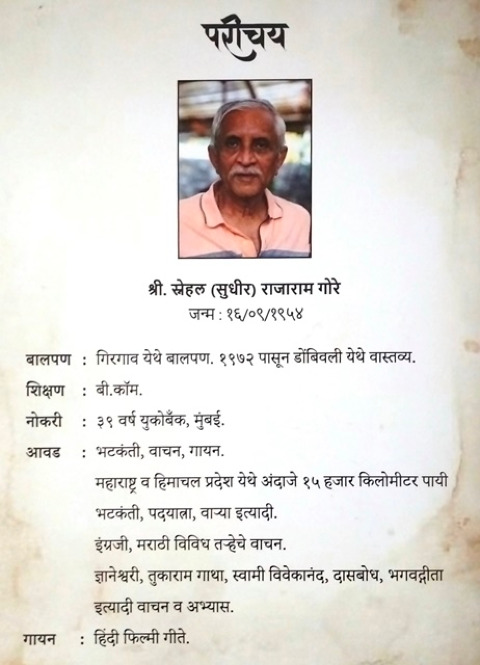 परीचय
श्री. स्नेहल (सुधीर) राजाराम गोरे
जन्म : १६/०९/१९५४
बालपण : गिरगाव येथे बालपण. १९७२ पासून डोंबिवली येथे वास्तव्य.
शिक्षण : बी.कॉम.
नोकरी : ३९ वर्ष युकोबँक, मुंबई.
आवड : भटकंती, वाचन, गायन.
महाराष्ट्र व हिमाचल प्रदेश येथे अंदाजे १५ हजार किलोमीटर पायी
भटकंती, पदयात्रा, वाऱ्या इत्यादी.
इंग्रजी, मराठी विविध तऱ्हेचे वाचन.
ज्ञानेश्वरी, तुकाराम गाथा, स्वामी विवेकानंद, दासबोध, भगवद्गीता
इत्यादी वाचन व अभ्यास.
गायन : हिंदी फिल्मी गीते.